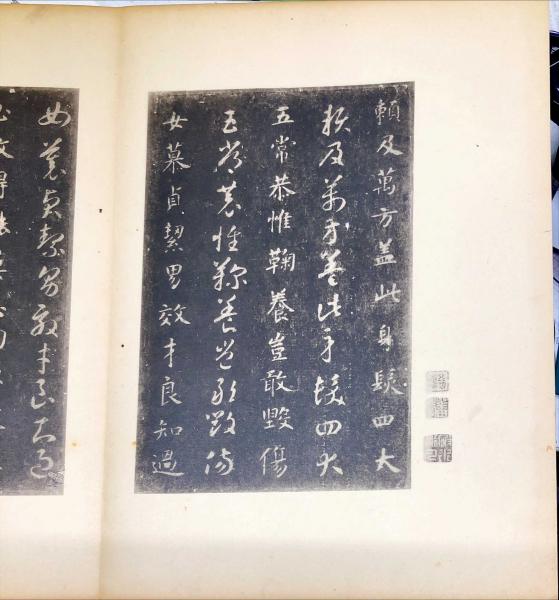 賴及萬方盖此身髮四大
賴及萬方蓋此身髮四大
五常恭惟鞠養豈敢毀傷
五常恭惟鞠養豈敢毀傷
女慕貞絜男效才良知過
女慕貞絜男效才良知過
必改得能莫